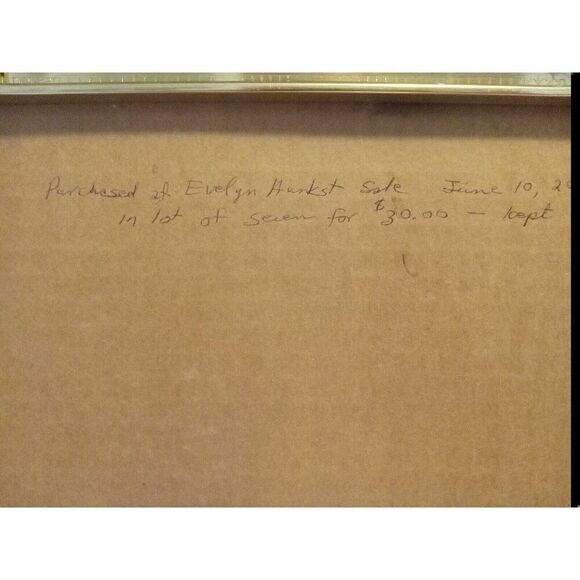 Purchased at Evelyn Hunkst Sale June 10, 20
in lot of seven for $30.00 – kept